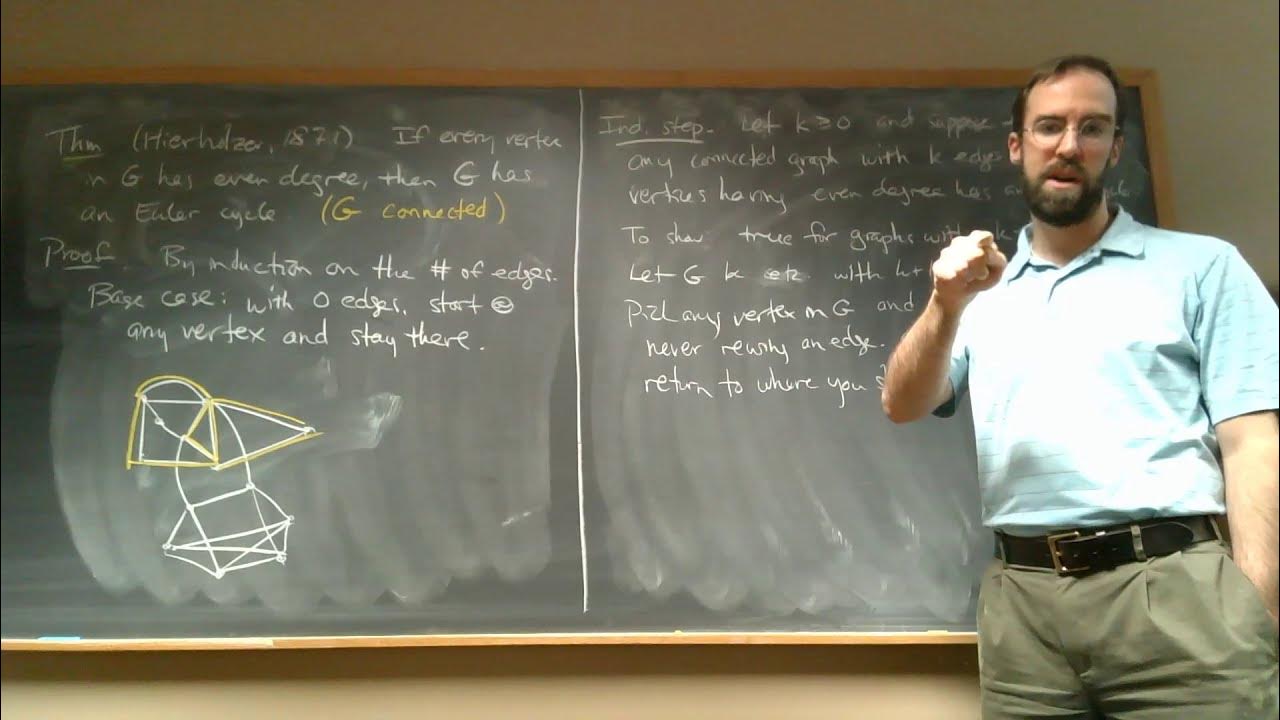 Thm (Hierholzer, 1871) If every vertex
in G has even degree, then G has
an Euler cycle (G connected)
Proof. By induction on the # of edges.
Base case: with 0 edges, start @
any vertex and stay there.
Ind. step. Let k ≥ 0 and suppose
any connected graph with k edges
vertices having even degree has
To show: true for graphs with
Let G be etc. with k+
Pick any vertex in G and
never reusing an edge.
return to where you